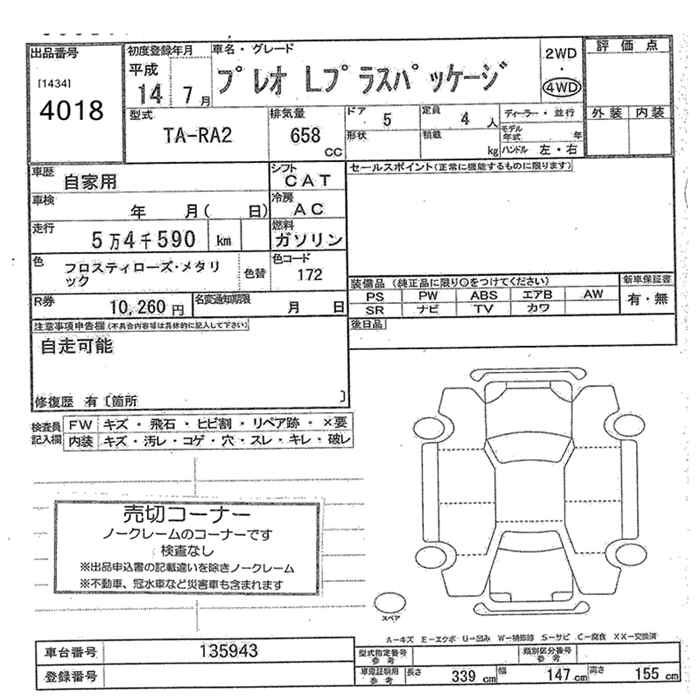 出品番号
[1434]
4018
初度登録年月
平成
14 7 月
車名・グレード
プレオ Lプラスパッケージ
2WD
・
4WD
評価点
外装 内装
型式
TA-RA2
排気量
658
CC
ドア
5
定員
4 人
ディーラー・並行
形状
積載
kg
モデル
年式
年
ハンドル 左・右
車歴
自家用
シフト
CAT
車検
年 月( 日)
冷房
AC
走行
5万4千590 km
燃料
ガソリン
色
フロスティローズ・メタリ
ック
色替
色コード
172
R券
10,260 円
名変通知期限
月 日
セールスポイント(正常に機能するものに限ります)
装備品(純正品に限り○をつけてください)
新車保証書
PS PW ABS エアB AW
SR ナビ TV カワ
有・無
後日品
注意事項申告欄(不具合内容等は具体的に記入して下さい)
自走可能
修復歴 有〔箇所 〕
検査員
記入欄
FW キズ・飛石・ヒビ割・リペア跡・×要
内装 キズ・汚レ・コゲ・穴・スレ・キレ・破レ
売切コーナー
ノークレームのコーナーです
検査なし
※出品申込書の記載違いを除きノークレーム
※不動車、冠水車など災害車も含まれます
スペア
A-キズ E-エクボ U-凹み W-補修跡 S-サビ C-腐食 XX-交換済
車台番号
135943
登録番号
型式指定番号
参考
類別区分番号
参考
車検証記載
参考
長さ 339 cm 幅 147 cm 高さ 155 cm